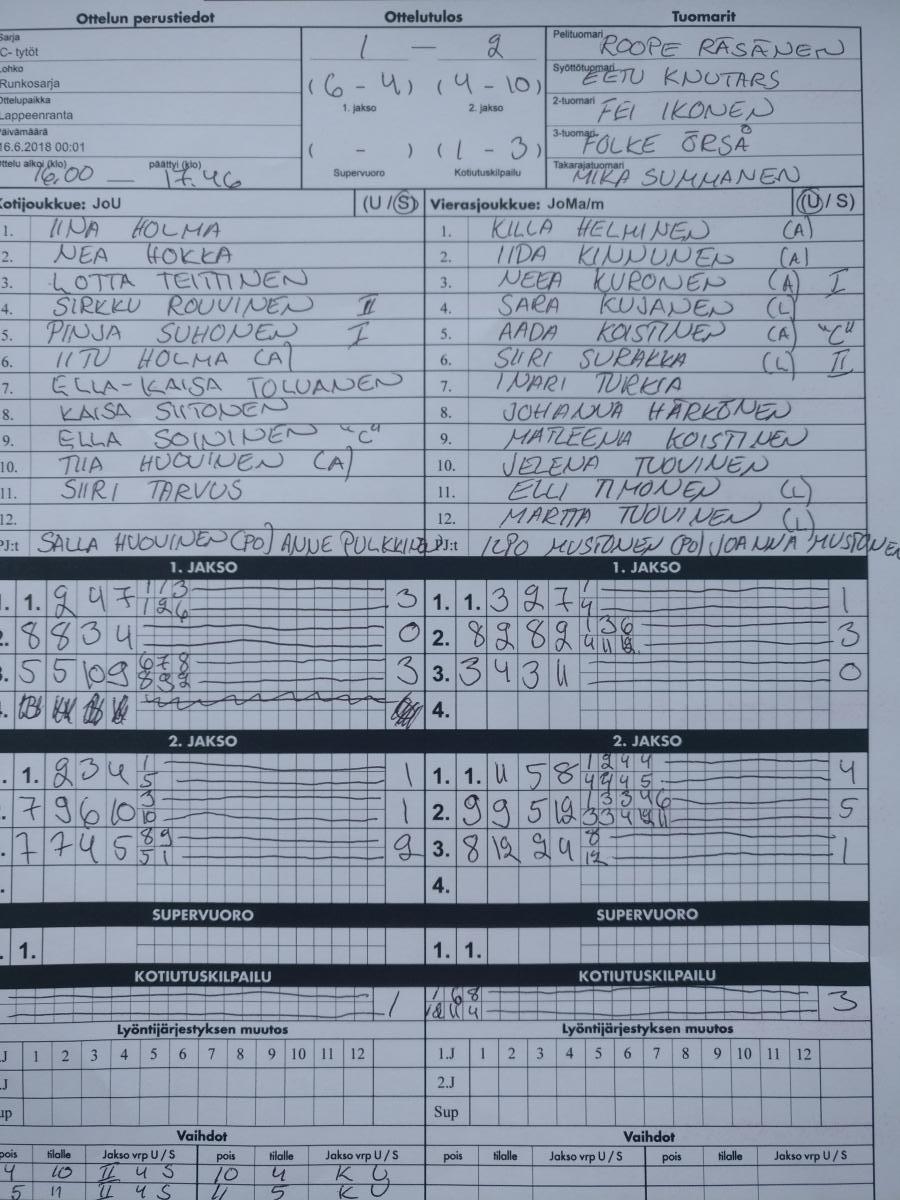 Ottelun perustiedot Ottelutulos Tuomarit
Sarja
C- tytöt
Lohko
Runkosarja
Ottelupaikka
Lappeenranta
Päivämäärä
16.6.2018 00:01
Ottelu alkoi (klo) päättyi (klo)
16.00 — 17.46
1 — 2
(6 - 4) (4 - 10)
1. jakso 2. jakso
( - ) (1 - 3)
Supervuoro Kotiutuskilpailu
Pelituomari ROOPE RÄSÄNEN
Syöttötuomari EETU KNUTARS
2-tuomari FEI IKONEN
3-tuomari FOLKE ÖRSÅ
Takarajatuomari MIKA SUMMANEN
Kotijoukkue: JoU (U / S)
1. IINA HOLMA
2. NEA HOKKA
3. LOTTA TEITTINEN
4. SIRKKU ROUVINEN II
5. PINJA SUHONEN I
6. IITU HOLMA (A)
7. ELLA-KAISA TOLVANEN
8. KAISA SIITONEN
9. ELLA SOININEN "C"
10. TIIA HUOVINEN (A)
11. SIIRI TARVUS
12.
PJ:t SALLA HUOVINEN (PO) ANNE PULKKINEN
Vierasjoukkue: JoMa/m (U / S)
1. KILLA HELMINEN (A)
2. IIDA KINNUNEN (A)
3. NEEA KURONEN (A) I
4. SARA KUJANEN (L)
5. AADA KOISTINEN (A) "C"
6. SIIRI SURAKKA (L) II
7. INARI TURKIA
8. JOHANNA HÄRKÖNEN
9. MATLEENA KOISTINEN
10. JELENA TUOVINEN
11. ELLI TIMONEN (L)
12. MARTTA TUOVINEN (L)
PJ:t ILPO MUSTONEN (PO) JOANNA MUSTONEN
1. JAKSO 1. JAKSO
1. 1. 2 4 7 1 1 3 3
1 2 6
2. 8 8 3 4 0
3. 5 5 10 9 6 7 8 3
8 9 2
1. 1. 3 2 7 1 1
4
2. 8 2 8 2 1 3 6 3
4 11 12
3. 3 4 3 11 0
4.
2. JAKSO 2. JAKSO
1. 1. 2 3 4 1 1
5
7 9 6 10 3 1
10
7 7 4 5 8 9 2
5 1
1. 1. 11 5 8 1 2 4 4 4
4 4 4 5
2. 9 9 5 12 1 3 3 4 6 5
3 3 4 12 11
3. 8 12 2 4 8 1
12
4.
SUPERVUORO SUPERVUORO
1. 1. 1.
KOTIUTUSKILPAILU KOTIUTUSKILPAILU
1
1 6 8 3
12 11 4
Lyöntijärjestyksen muutos Lyöntijärjestyksen muutos
1.J 1 2 3 4 5 6 7 8 9 10 11 12 1.J 1 2 3 4 5 6 7 8 9 10 11 12
2.J 2.J
Sup Sup
Vaihdot Vaihdot
pois tilalle Jakso vrp U / S pois tilalle Jakso vrp U / S pois tilalle Jakso vrp U / S pois tilalle Jakso vrp U / S
4 10 II 4 S 10 4 K U
5 11 II 4 S 11 5 K U